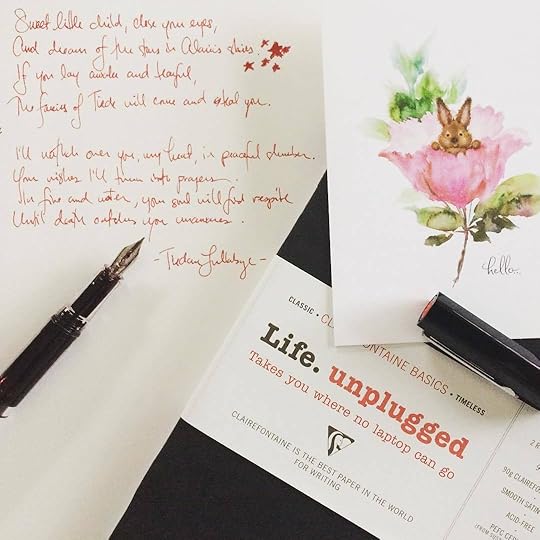 Sweet little child, close your eyes,
And dream of the stars in Alaric's skies.
If you lay awake and tearful,
The faeries of Tirde will come and steal you.
I'll watch over you, my heart, in peaceful slumber.
Your wishes I'll turn into prayers.
In fire and water, your soul will find respite
Until death catches you unawares.
- Lullabye -
hello...
CLASSIC •
FONTAINE BASICS • TIMELESS
Life. unplugged
Takes you where no laptop can go
CLAIREFONTAINE IS THE BEST PAPER IN THE WORLD
FOR WRITING
90g CLAIREFONT
SMOOTH SATIN
ACID-FREE
PEFC CERT